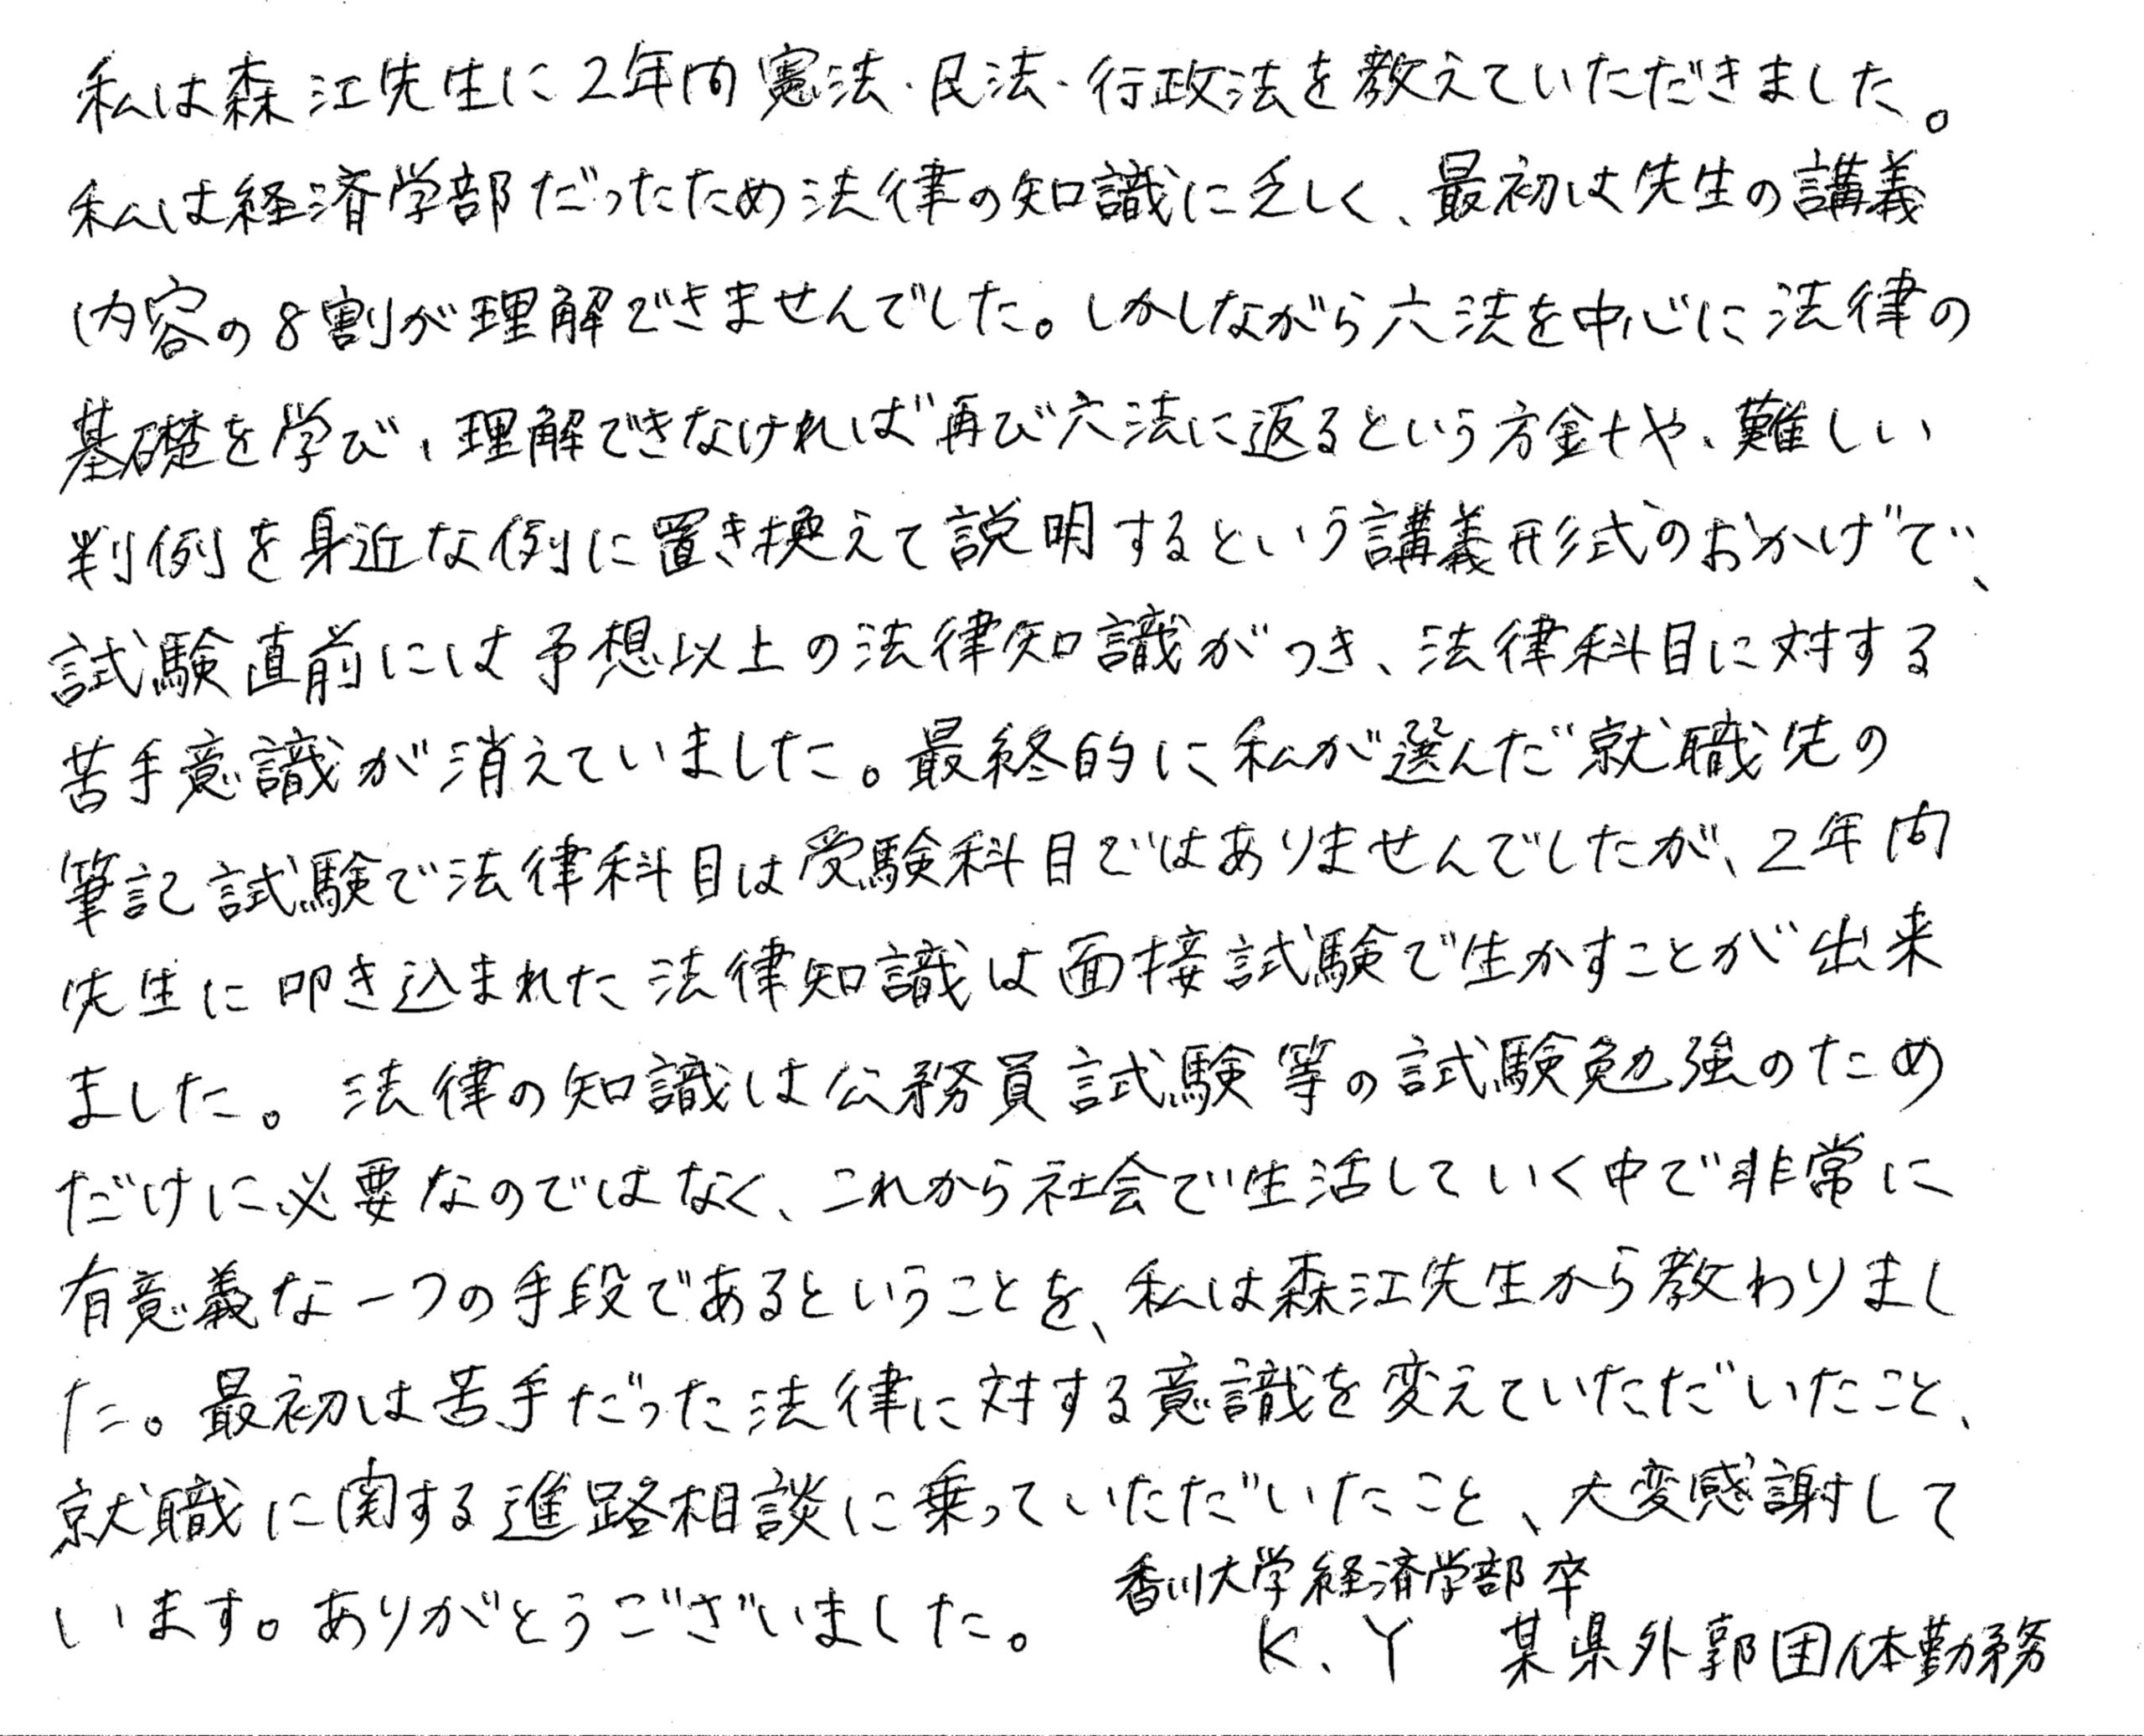 私は森江先生に2年間憲法・民法・行政法を教えていただきました。
私は経済学部だったため法律の知識に乏しく、最初は先生の講義
内容の8割が理解できませんでした。しかしながら六法を中心に法律の
基礎を学び、理解できなければ再び六法に返るという方針や、難しい
判例を身近な例に置き換えて説明するという講義形式のおかげで、
試験直前には予想以上の法律知識がつき、法律科目に対する
苦手意識が消えていました。最終的に私が選んだ就職先の
筆記試験で法律科目は受験科目ではありませんでしたが、2年間
先生に叩き込まれた法律知識は面接試験で生かすことが出来
ました。法律の知識は公務員試験等の試験勉強のため
だけに必要なのではなく、これから社会で生活していく中で非常に
有意義な一つの手段であるということを、私は森江先生から教わりまし
た。最初は苦手だった法律に対する意識を変えていただいたこと、
就職に関する進路相談に乗っていただいたこと、大変感謝して
います。ありがとうございました。
香川大学経済学部卒
K、Y 某県外郭団体勤務